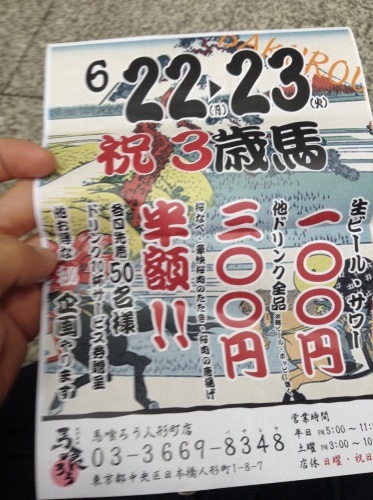 BAKURO!
6 22(月)▶23(火)
祝3歳馬
生ビール・サワー
一〇〇円
他ドリンク全品
三〇〇円
桜なべ・豪快桜肉のたたき・桜肉の唐揚げ
半額!!
各日先着50名様
ドリンク1杯サービス券贈呈
他お得な
企画やります!
馬喰ろう
馬喰ろう人形町店
03-3669-8348
バサシヤ
東京都中央区日本橋人形町1-8-7
営業時間
平日 PM5:00~11:
土曜 PM3:00~10:
店休 日曜・祝日